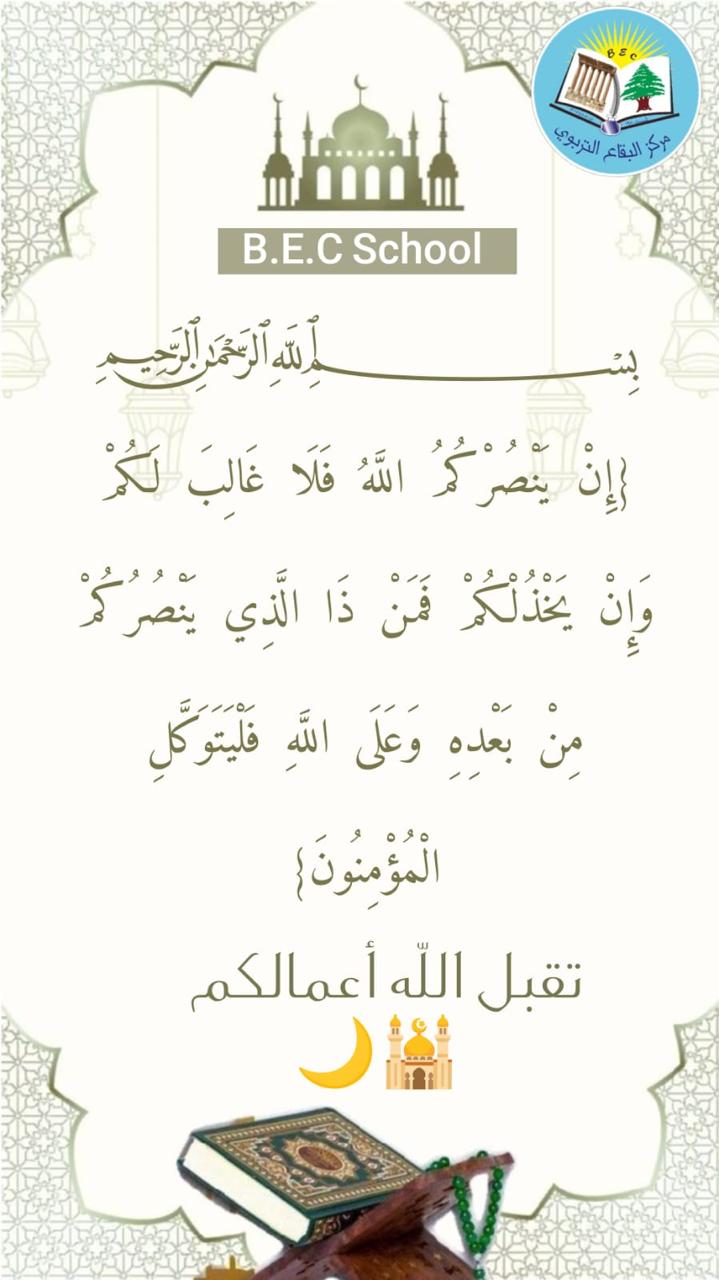 B E C
مركز البقاع التربوي
B.E.C School
بِسْمِ اللَّهِ الرَّحْمَٰنِ الرَّحِيمِ
{إِنْ يَنْصُرْكُمُ اللَّهُ فَلَا غَالِبَ لَكُمْ
وَإِنْ يَخْذُلْكُمْ فَمَنْ ذَا الَّذِي يَنْصُرُكُمْ
مِنْ بَعْدِهِ وَعَلَى اللَّهِ فَلْيَتَوَكَّلِ
الْمُؤْمِنُونَ}
تقبل اللّه أعمالكم